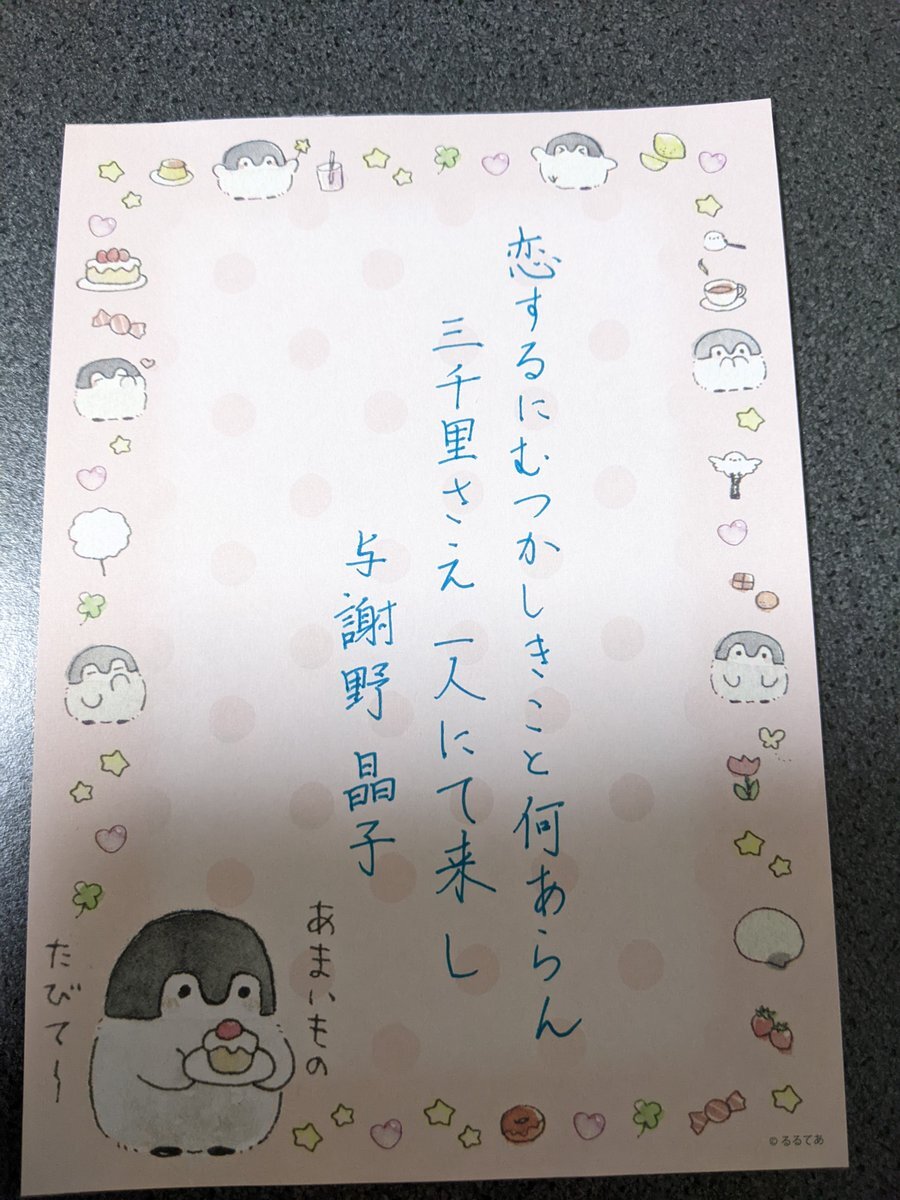 恋するにむつかしきこと何あらん
三千里さえ一人にて来し
与謝野晶子
あまいもの
たびて〜
© るるてあ